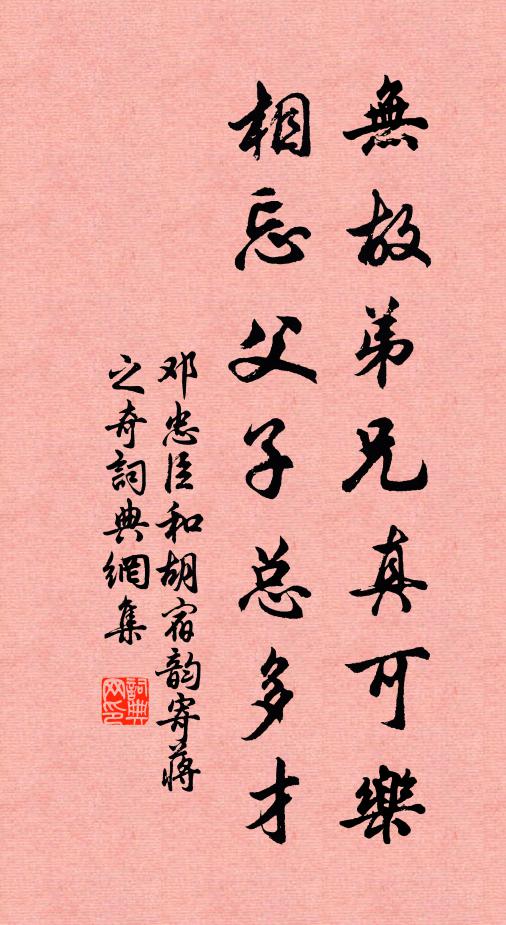 無故弟兄真可樂
相忘父子总多才
邓忠臣和胡宿韵寄蔣
之奇詞典網集
詞典网印